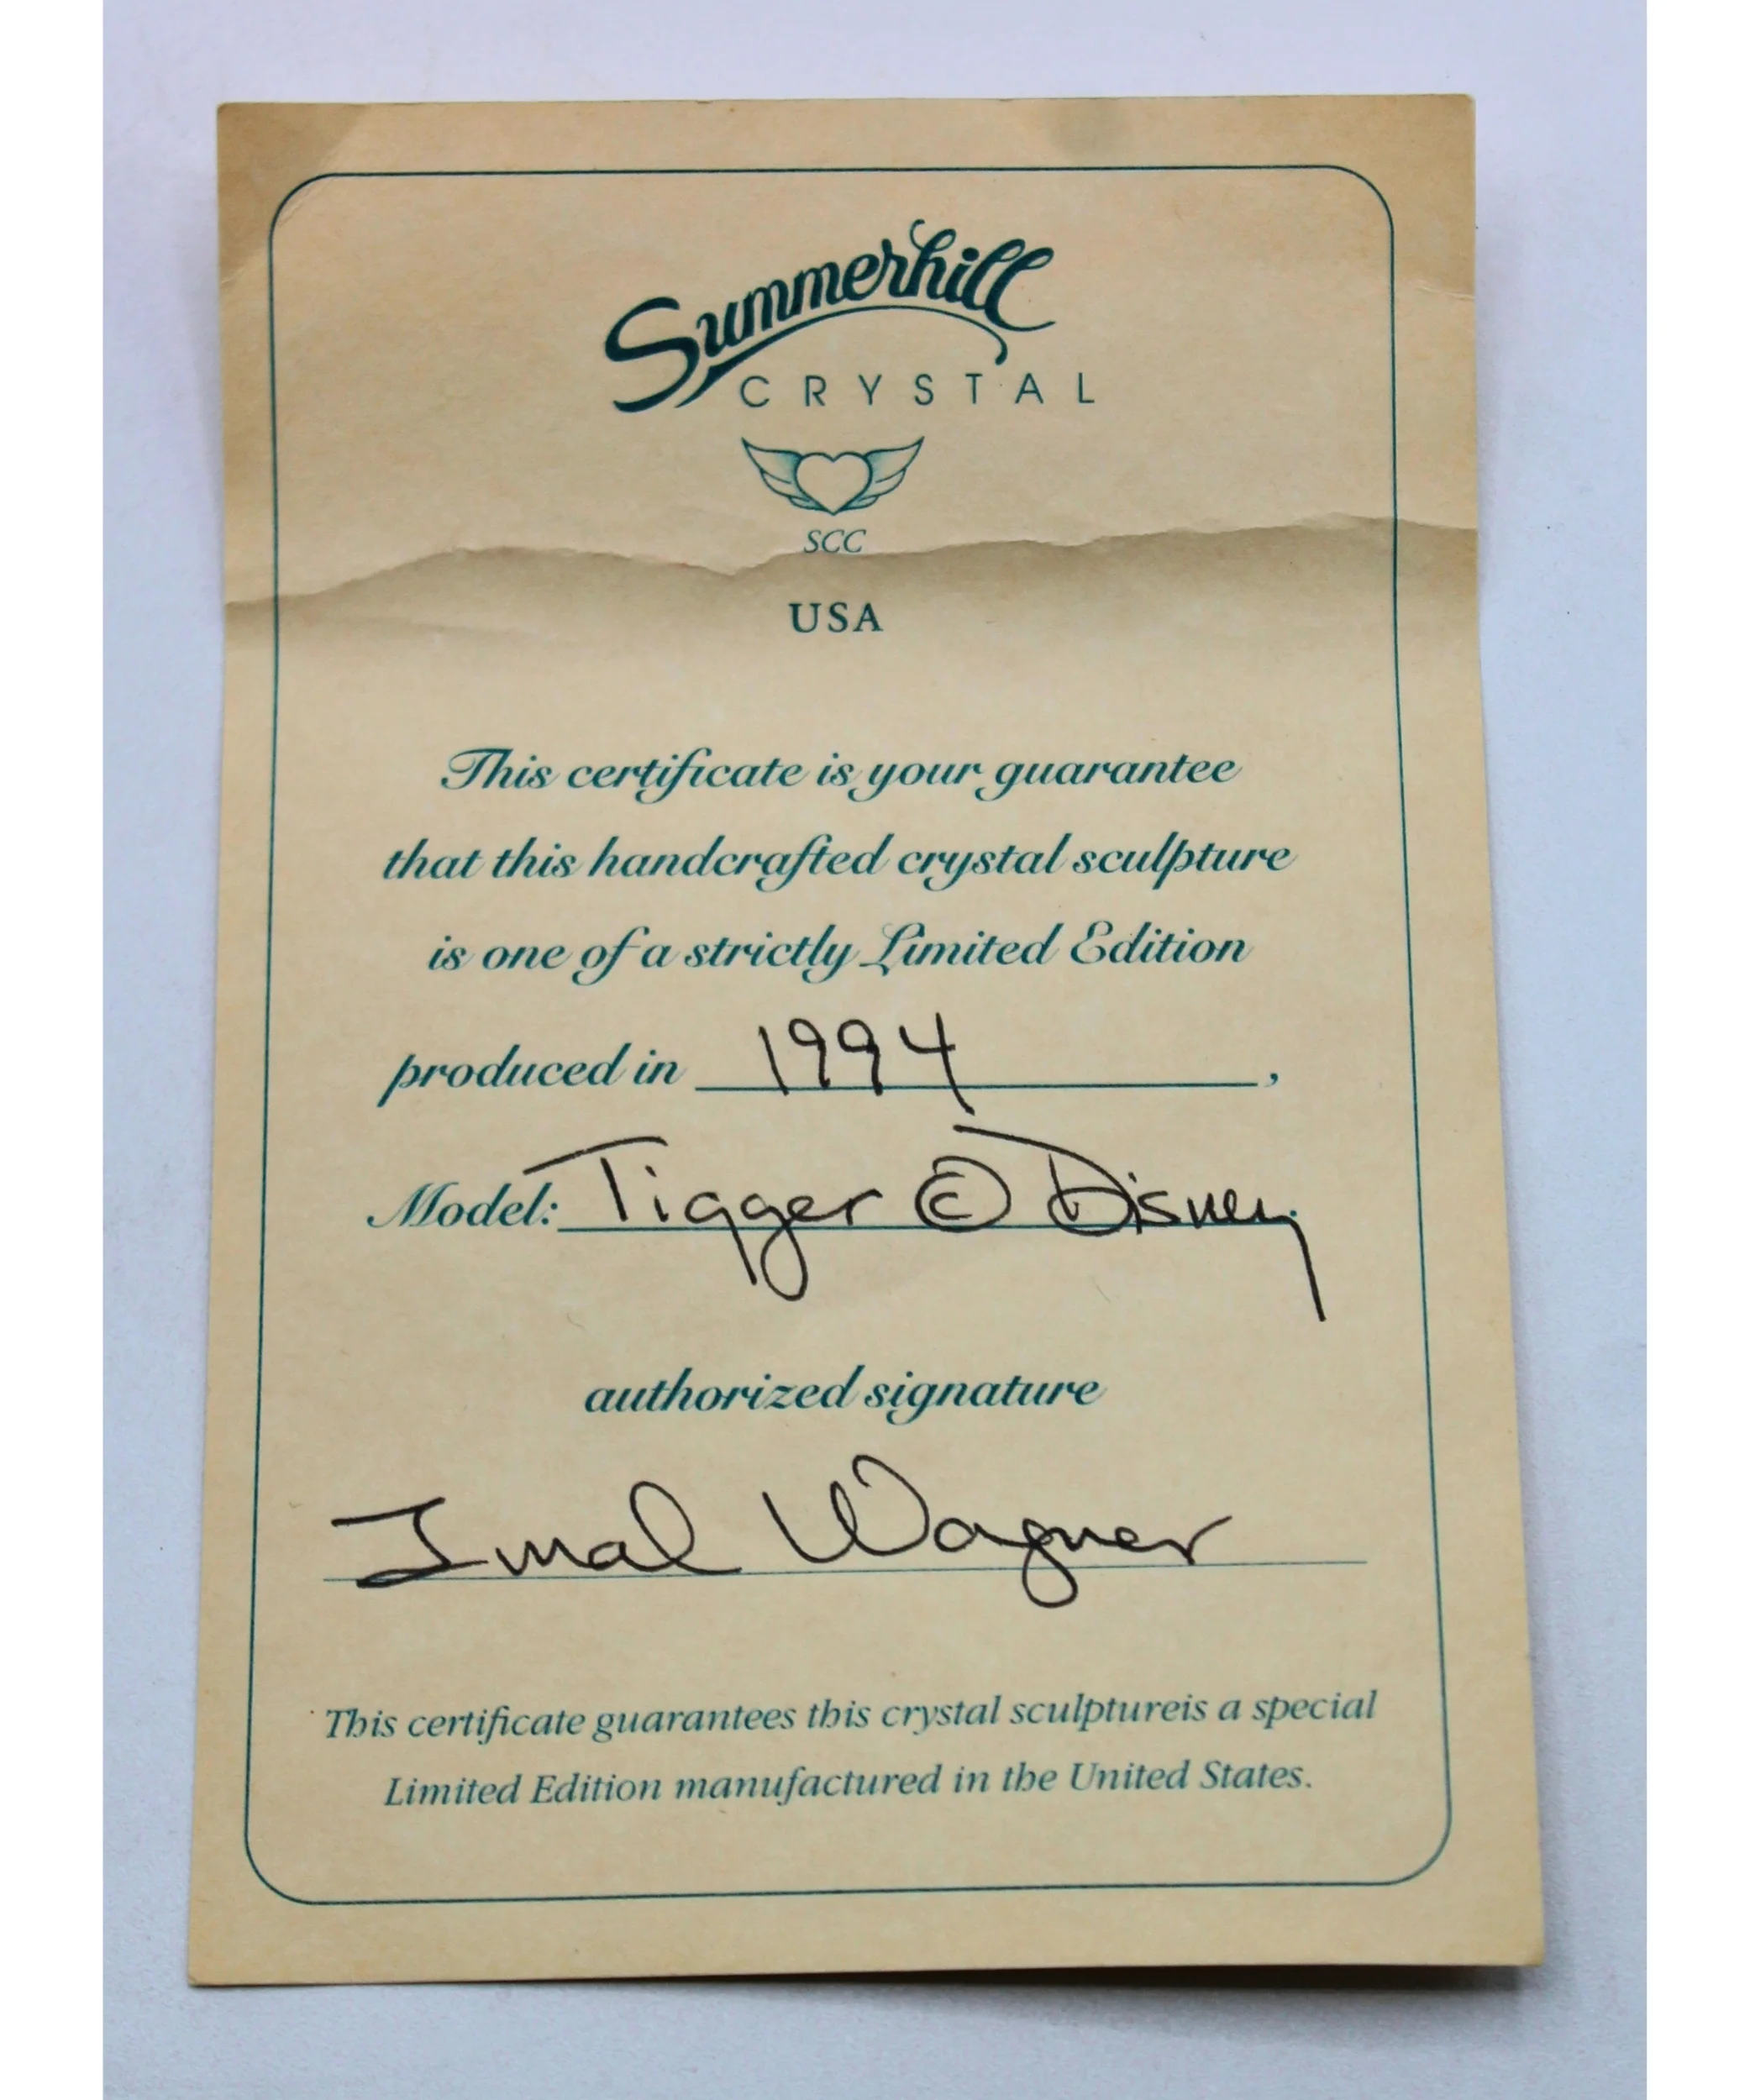 Summerhill
CRYSTAL
SCC
USA
This certificate is your guarantee
that this handcrafted crystal sculpture
is one of a strictly Limited Edition
produced in 1994,
Model: Tigger © Disney
authorized signature
Imal Wagner
This certificate guarantees this crystal sculptureis a special
Limited Edition manufactured in the United States.